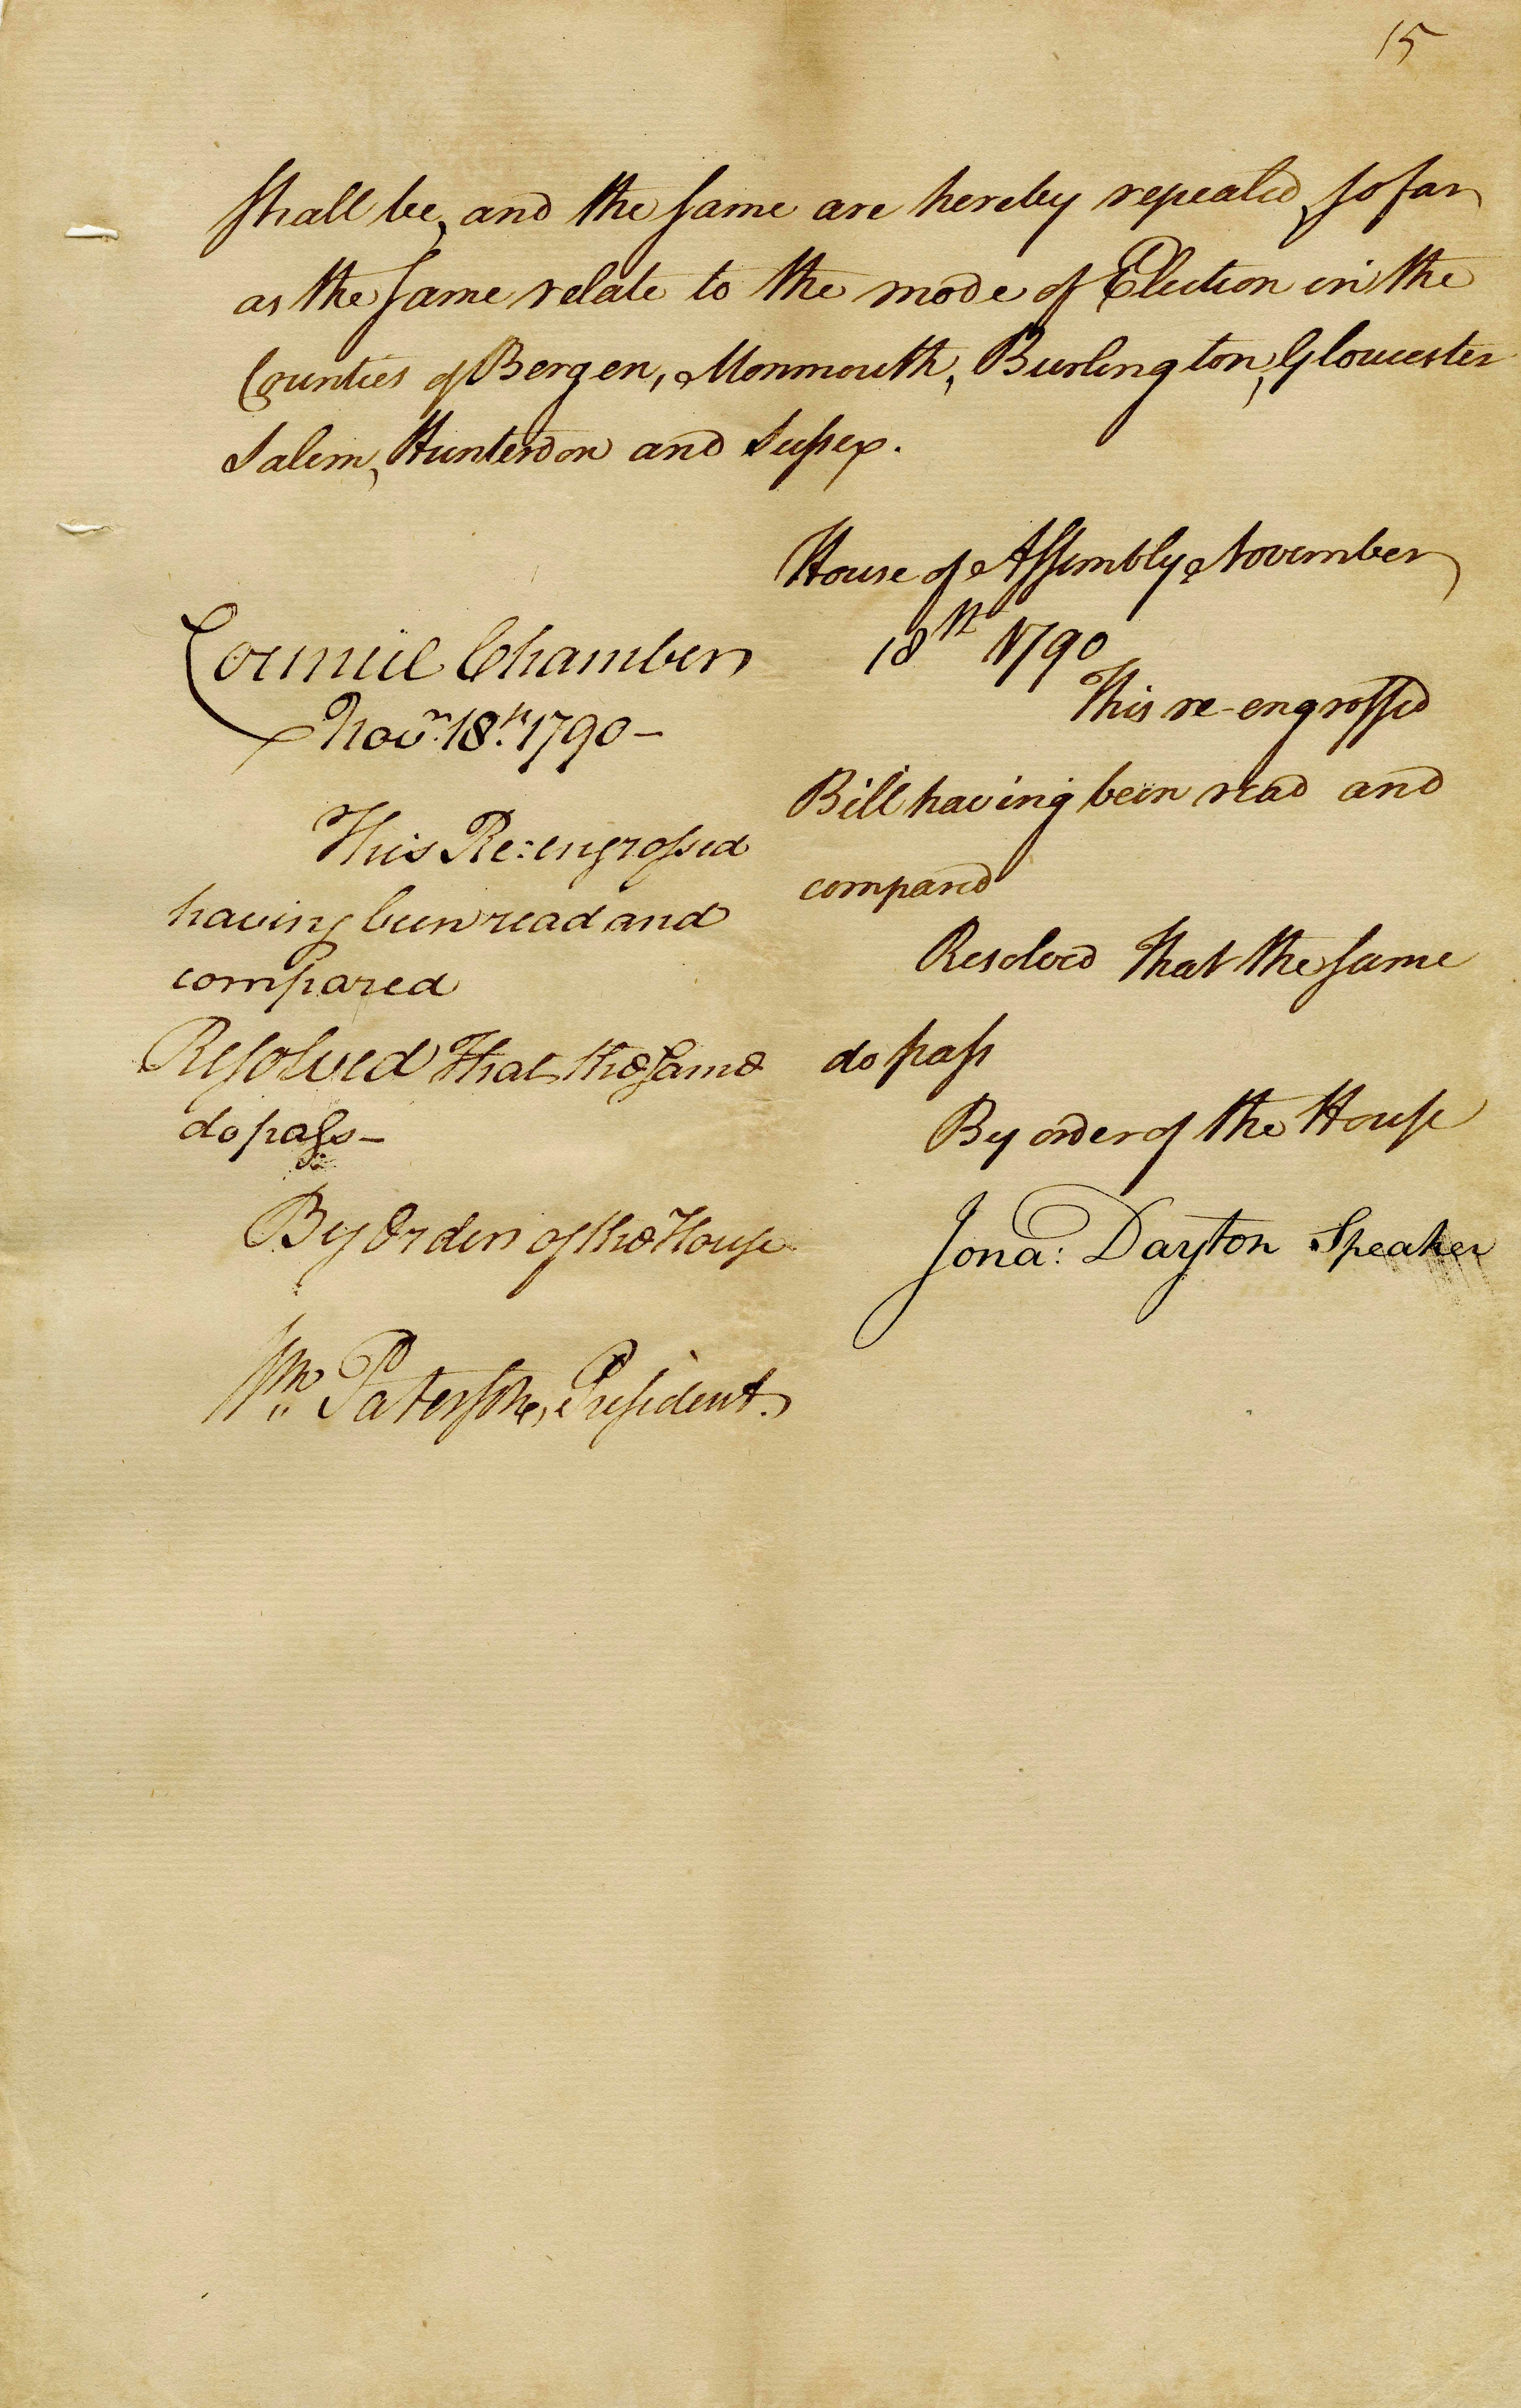 15
shall be, and the same are hereby repealed, so far
as the same relate to the mode of Election in the
Counties of Bergen, Monmouth, Burlington, Gloucester
Salem, Hunterdon and Sussex.
House of Assembly November
18th 1790
This re-engrossed
Bill having been read and
compared
Resolved That the same
do pass
By order of the House
Jona: Dayton Speaker
Council Chamber
Novr. 18th. 1790 –
This Re:engrossed
having been read and
compared
Resolved that the Same
do pass –
By Order of the House
Wm. Paterson, President.